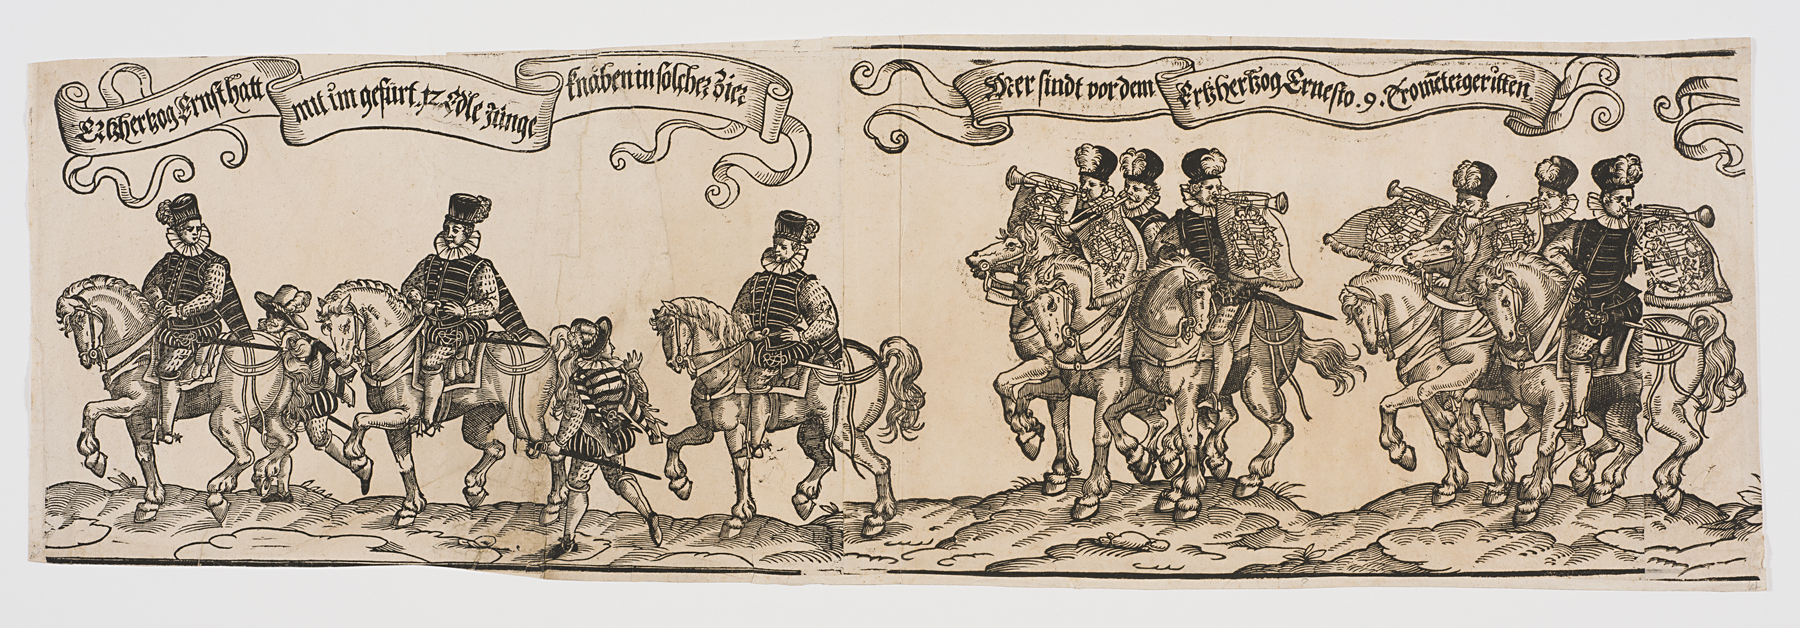 Ertzhertzog Ernst hatt
mit im gefürt. 12 Edle Junge
knäben in solcher Zier
Hier sindt vor dem
Ertzhertzog Ernesto. 9. Tromēter geritten.